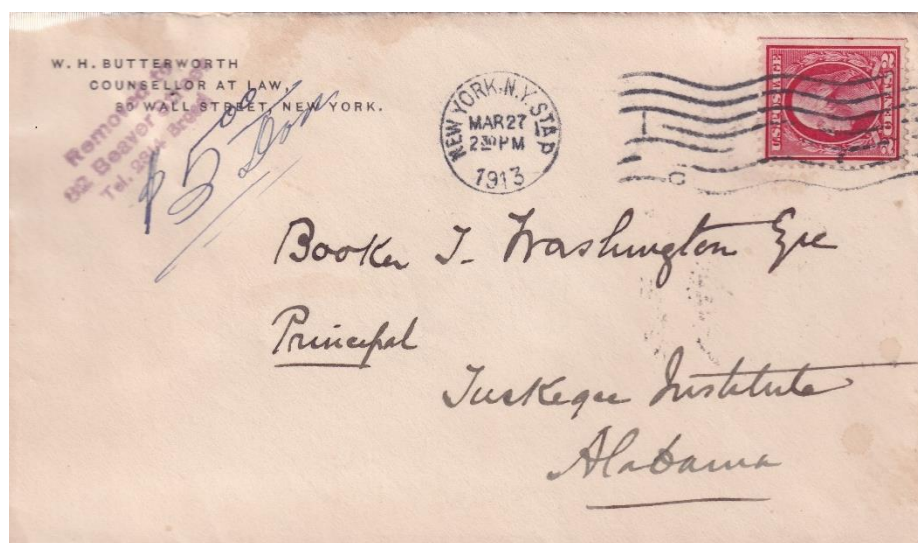 W. H. BUTTERWORTH
COUNSELLOR AT LAW,
WALL STREET, NEW YORK.
Removed to
82 Beaver St.
Tel.
$5 00
Don
NEW YORK, N.Y. STA. P
MAR 27
2 30 PM
1913
U.S. POSTAGE
2 CENTS 2
Booker T. Washington Esq
Principal
Tuskegee Institute
Alabama